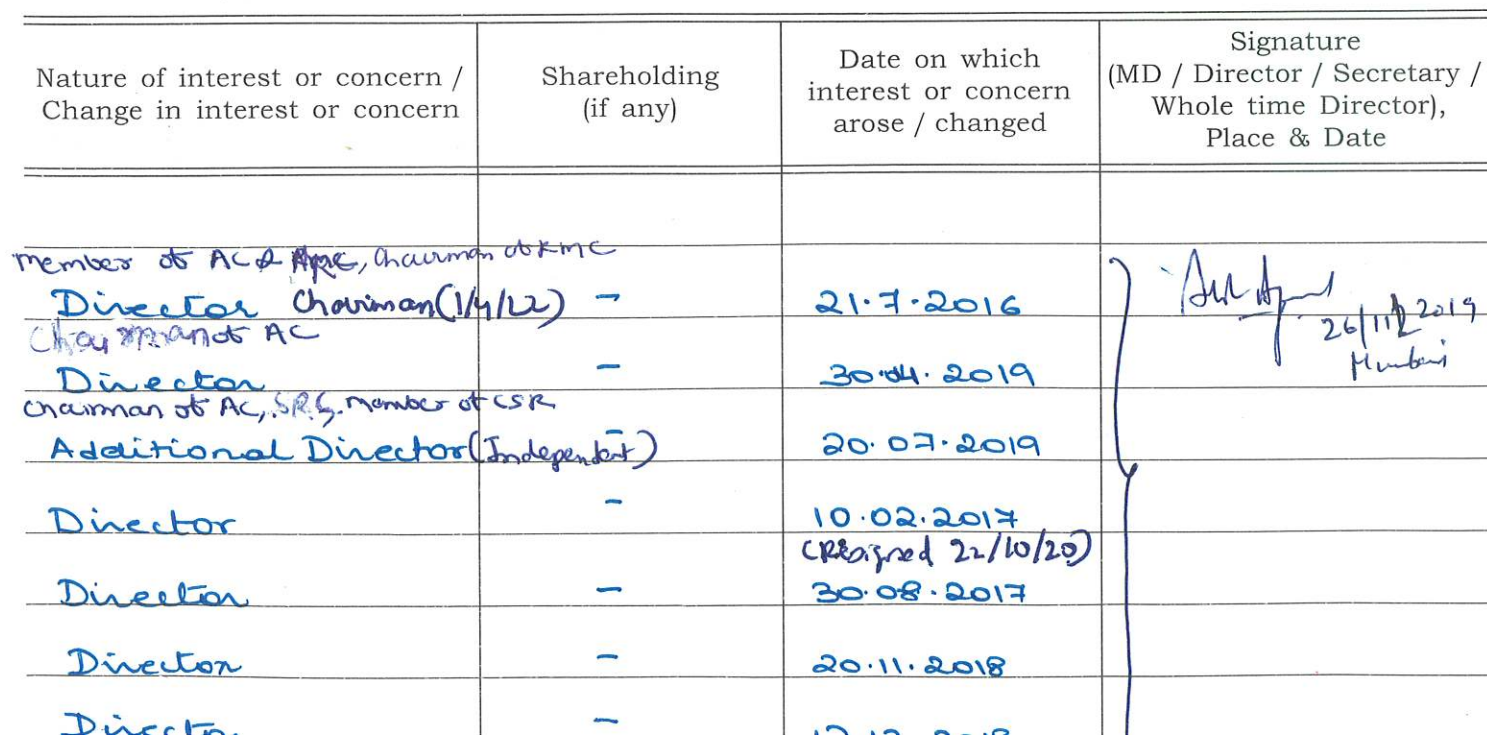 Nature of interest or concern /
Change in interest or concern
Shareholding
(if any)
Date on which
interest or concern
arose / changed
Signature
(MD / Director / Secretary /
Whole time Director),
Place & Date
Member of AC & Chairman of RMC
Director Chairman (1/4/22) - 21.7.2016
26/11/2019
Mumbai
Chairman of AC
Director - 30.04.2019
Chairman of AC, SRC, Member of CSR
Additional Director (Independent) - 20.07.2019
Director - 10.02.2017
(Resigned 22/10/20)
Director - 30.08.2017
Director - 20.11.2018
Director -